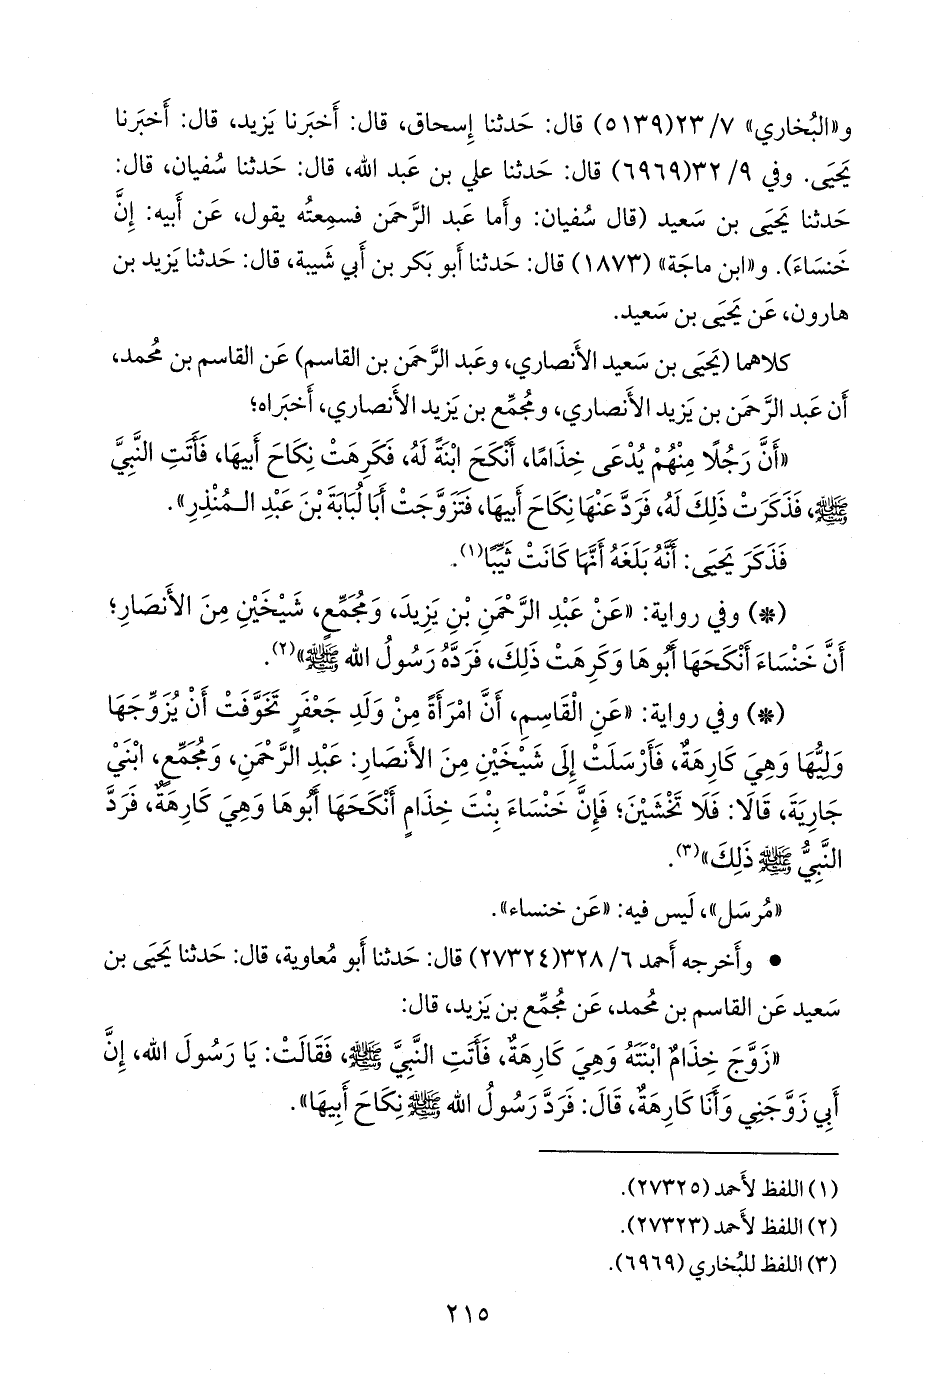 و«البُخاري» ٧/ ٢٣(٥١٣٩) قال: حَدثنا إِسحاق، قال: أَخبَرنا يَزيد، قال: أَخبَرنا
يَحيَى. وفي ٩/ ٣٢(٦٩٦٩) قال: حَدثنا علي بن عَبد الله، قال: حَدثنا سُفيان، قال:
حَدثنا يَحيَى بن سَعيد (قال سُفيان: وأَما عَبد الرَّحمَن فسمِعتُه يقول، عَن أَبيه: إِنَّ
خَنسَاءَ). و«ابن ماجَة» (١٨٧٣) قال: حَدثنا أَبو بَكر بن أَبي شَيبة، قال: حَدثنا يَزيد بن
هارون، عَن يَحيَى بن سَعيد.
كلاهما (يَحيَى بن سَعيد الأَنصاري، وعَبد الرَّحمَن بن القاسم) عَن القاسم بن مُحمد،
أَن عَبد الرَّحمَن بن يَزيد الأَنصاري، ومُجمِّع بن يَزيد الأَنصاري، أَخبَراه؛
«أَنَّ رَجُلًا مِنْهُمْ يُدْعَى خِذَامًا، أَنْكَحَ ابْنَةً لَهُ، فَكَرِهَتْ نِكَاحَ أَبِيهَا، فَأَتَتِ النَّبِيَّ
ﷺ، فَذَكَرَتْ ذَلِكَ لَهُ، فَرَدَّ عَنْهَا نِكَاحَ أَبِيهَا، فَتَزَوَّجَتْ أَبَا لُبَابَةَ بْنَ عَبْدِ الـمُنْذِرِ».
فَذَكَرَ يَحيَى: أَنَّهُ بَلَغَهُ أَنَّهَا كَانَتْ ثَيِّبًا(١).
(*) وفي رواية: «عَنْ عَبْدِ الرَّحْمَنِ بْنِ يَزِيدَ، وَمُجَمِّعٍ، شَيْخَيْنِ مِنَ الأَنْصَارِ؛
أَنَّ خَنْسَاءَ أَنْكَحَهَا أَبُوهَا وَكَرِهَتْ ذَلِكَ، فَرَدَّهُ رَسُولُ الله ﷺ»(٢).
(*) وفي رواية: «عَنِ الْقَاسِمِ، أَنَّ امْرَأَةً مِنْ وَلَدِ جَعْفَرٍ تَخَوَّفَتْ أَنْ يُزَوِّجَهَا
وَلِيُّهَا وَهِيَ كَارِهَةٌ، فَأَرْسَلَتْ إِلَى شَيْخَيْنِ مِنَ الأَنْصَارِ: عَبْدِ الرَّحْمَنِ، وَمُجَمِّعٍ، ابْنَيْ
جَارِيَةَ، قَالَا: فَلَا تَخْشَيْنَ؛ فَإِنَّ خَنْسَاءَ بِنْتَ خِذَامٍ أَنْكَحَهَا أَبُوهَا وَهِيَ كَارِهَةٌ، فَرَدَّ
النَّبِيُّ ﷺ ذَلِكَ»(٣).
«مُرسَل»، لَيس فيه: «عَن خنساء».
● وأَخرجه أَحمد ٦/ ٣٢٨(٢٧٣٢٤) قال: حَدثنا أَبو مُعاوية، قال: حَدثنا يَحيَى بن
سَعيد عَن القاسم بن مُحمد، عَن مُجمِّع بن يَزيد، قال:
«زَوَّجَ خِذَامٌ ابْنَتَهُ وَهِيَ كَارِهَةٌ، فَأَتَتِ النَّبِيَّ ﷺ، فَقَالَتْ: يَا رَسُولَ الله، إِنَّ
أَبِي زَوَّجَنِي وَأَنَا كَارِهَةٌ، قَالَ: فَرَدَّ رَسُولُ الله ﷺ نِكَاحَ أَبِيهَا».
(١) اللفظ لأَحمد (٢٧٣٢٥).
(٢) اللفظ لأَحمد (٢٧٣٢٣).
(٣) اللفظ للبُخاري (٦٩٦٩).
٢١٥